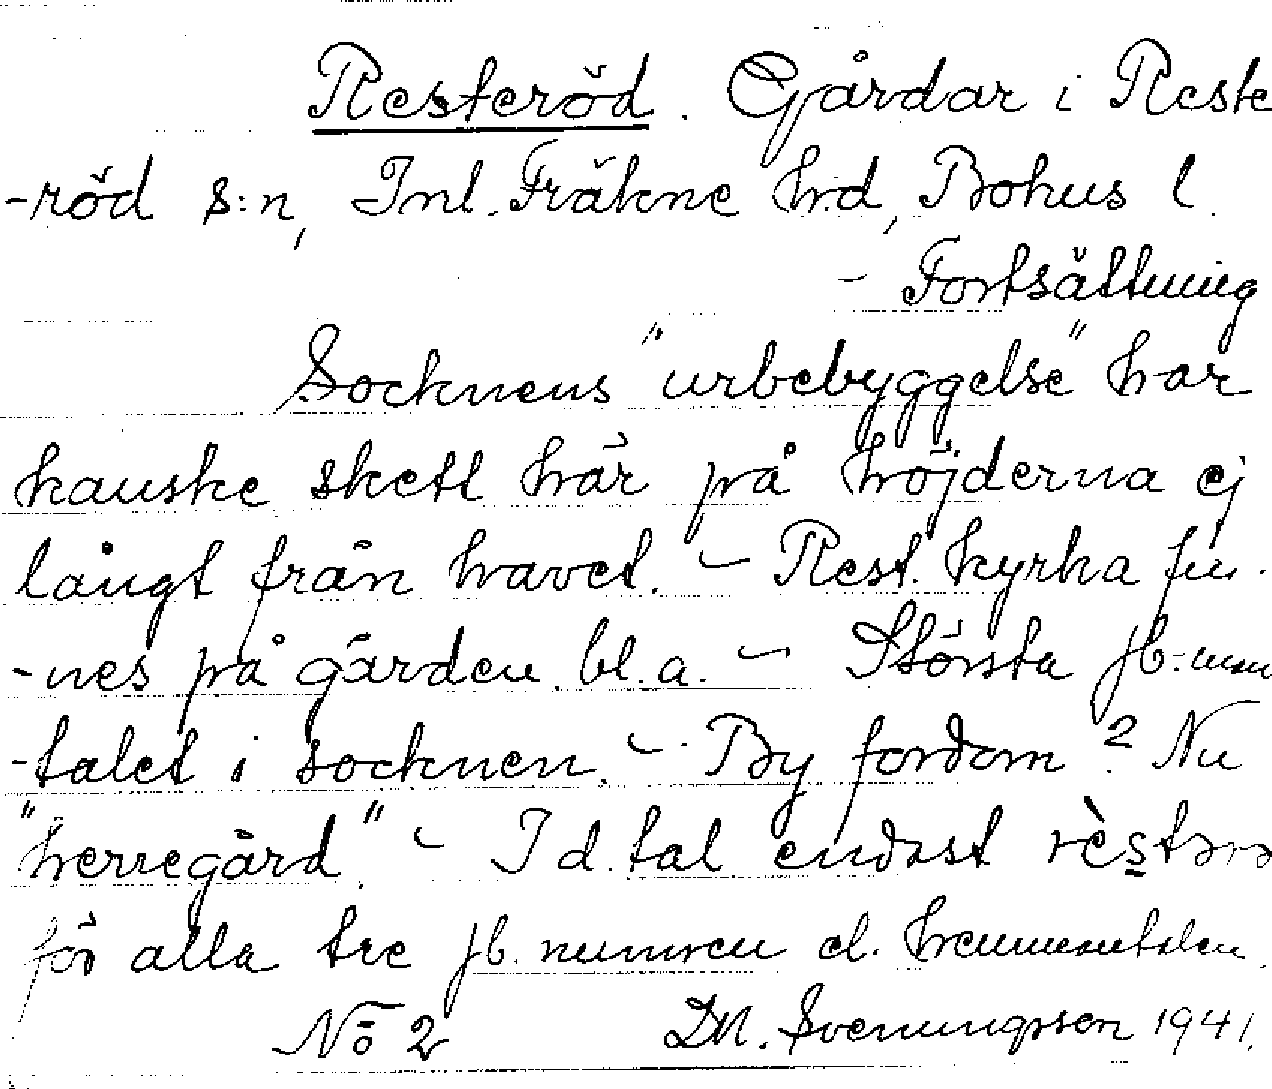 Resteröd. Gårdar i Reste
-röd s:n, Inl. Fräkne hrd, Bohus l.
- Fortsättning
Socknens "urbebyggelse" har
kanske skett här på höjderna ej
långt från havet. - Rest. kyrka fin-
-nes på gården bl.a. - Största jb.-num
-talet i socknen. - By fordom? Nu
"herregård". - I d. tal endast
för alla tre jb. numren el. hemmantalen.
No 2 D.N. Svenungsson 1941.